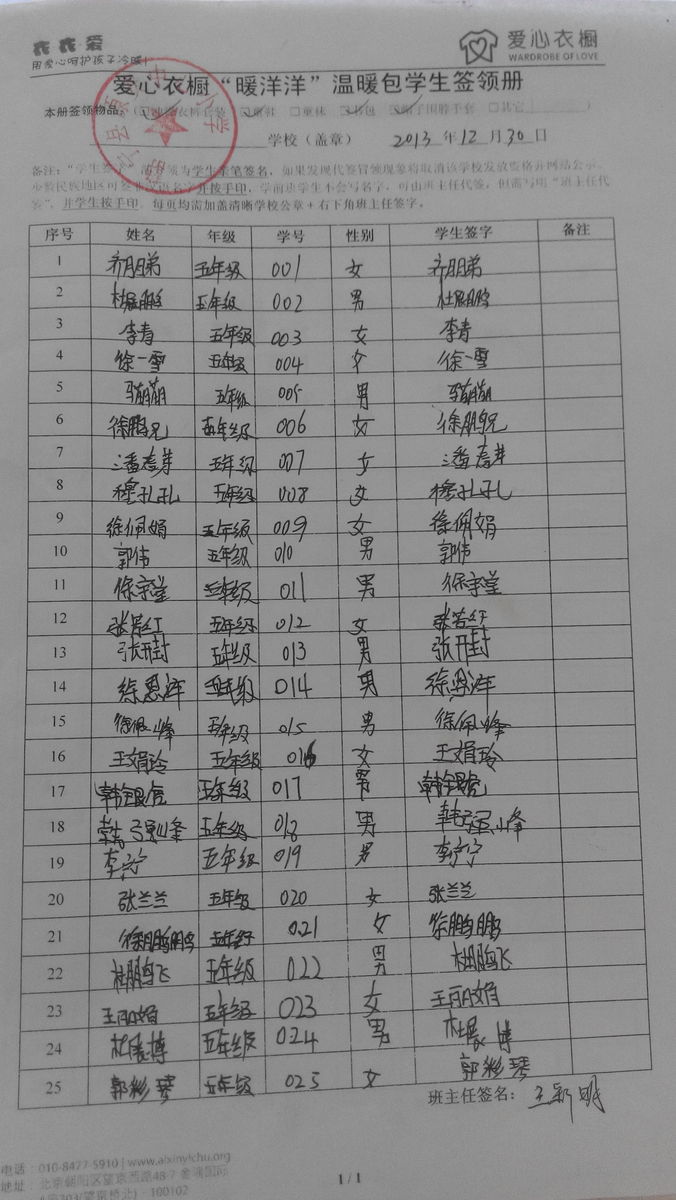 衣衣·爱
用爱心呵护孩子冷暖!
爱心衣橱
WARDROBE OF LOVE
爱心衣橱“暖洋洋”温暖包学生签领册
本册签领物品：
学校（盖章） 2013 年 12 月 30 日
备注：“学生签字”
如果发现代签冒领现象将取消该学校发放资格并网站公示。
并按手印，学前班学生不会写名字，可由班主任代签，但需写明“班主任代
签”，并学生按手印。每页均需加盖清晰学校公章+右下角班主任签字。
序号 姓名 年级 学号 性别 学生签字 备注
1 齐朋弟 五年级 001 女 齐朋弟
2 杜展鹏 五年级 002 男 杜展鹏
3 李青 五年级 003 女 李青
4 徐一雪 五年级 004 女 徐一雪
5 马萌萌 五年级 005 男 马萌萌
6 徐鹏兄 五年级 006 女 徐鹏兄
7 五年级 007 女
8 穆孔孔 五年级 008 女 穆孔孔
9 徐佩娟 五年级 009 女 徐佩娟
10 郭伟 五年级 010 男 郭伟
11 徐宗堂 五年级 011 男 徐宗堂
12 张若红 五年级 012 女 张若红
13 张开封 五年级 013 男 张开封
14 徐恩泽 五年级 014 男 徐恩泽
15 徐佩峰 五年级 015 男 徐佩峰
16 王娟玲 五年级 016 女 王娟玲
17 韩银虎 五年级 017 男 韩银虎
18 五年级 018 男
19 李宁宁 五年级 019 男 李宁宁
20 张兰兰 五年级 020 女 张兰兰
21 徐鹏鹏 五年级 021 女 徐鹏鹏
22 杜鹏飞 五年级 022 男 杜鹏飞
23 王丽娟 五年级 023 女 王丽娟
24 杜展博 五年级 024 男 杜展博
25 郭彩琴 五年级 025 女 郭彩琴
班主任签名： 王新明
电话：010-8477-5910 | www.aixinyichu.org
地址：北京朝阳区望京西路48-7 金隅国际
1 / 1
100102